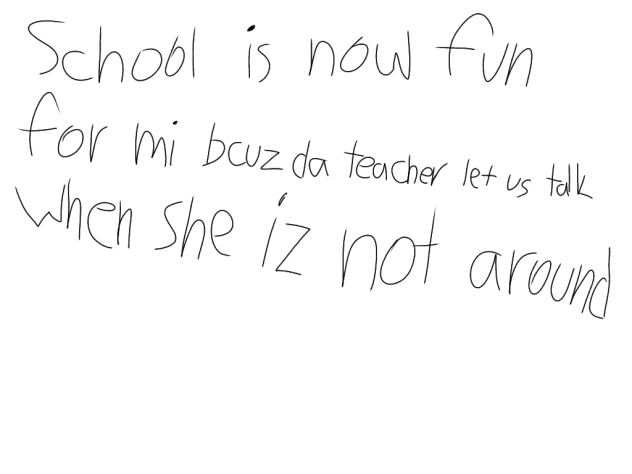 School is now fun
for mi bcuz da teacher let us talk
when she iz not around